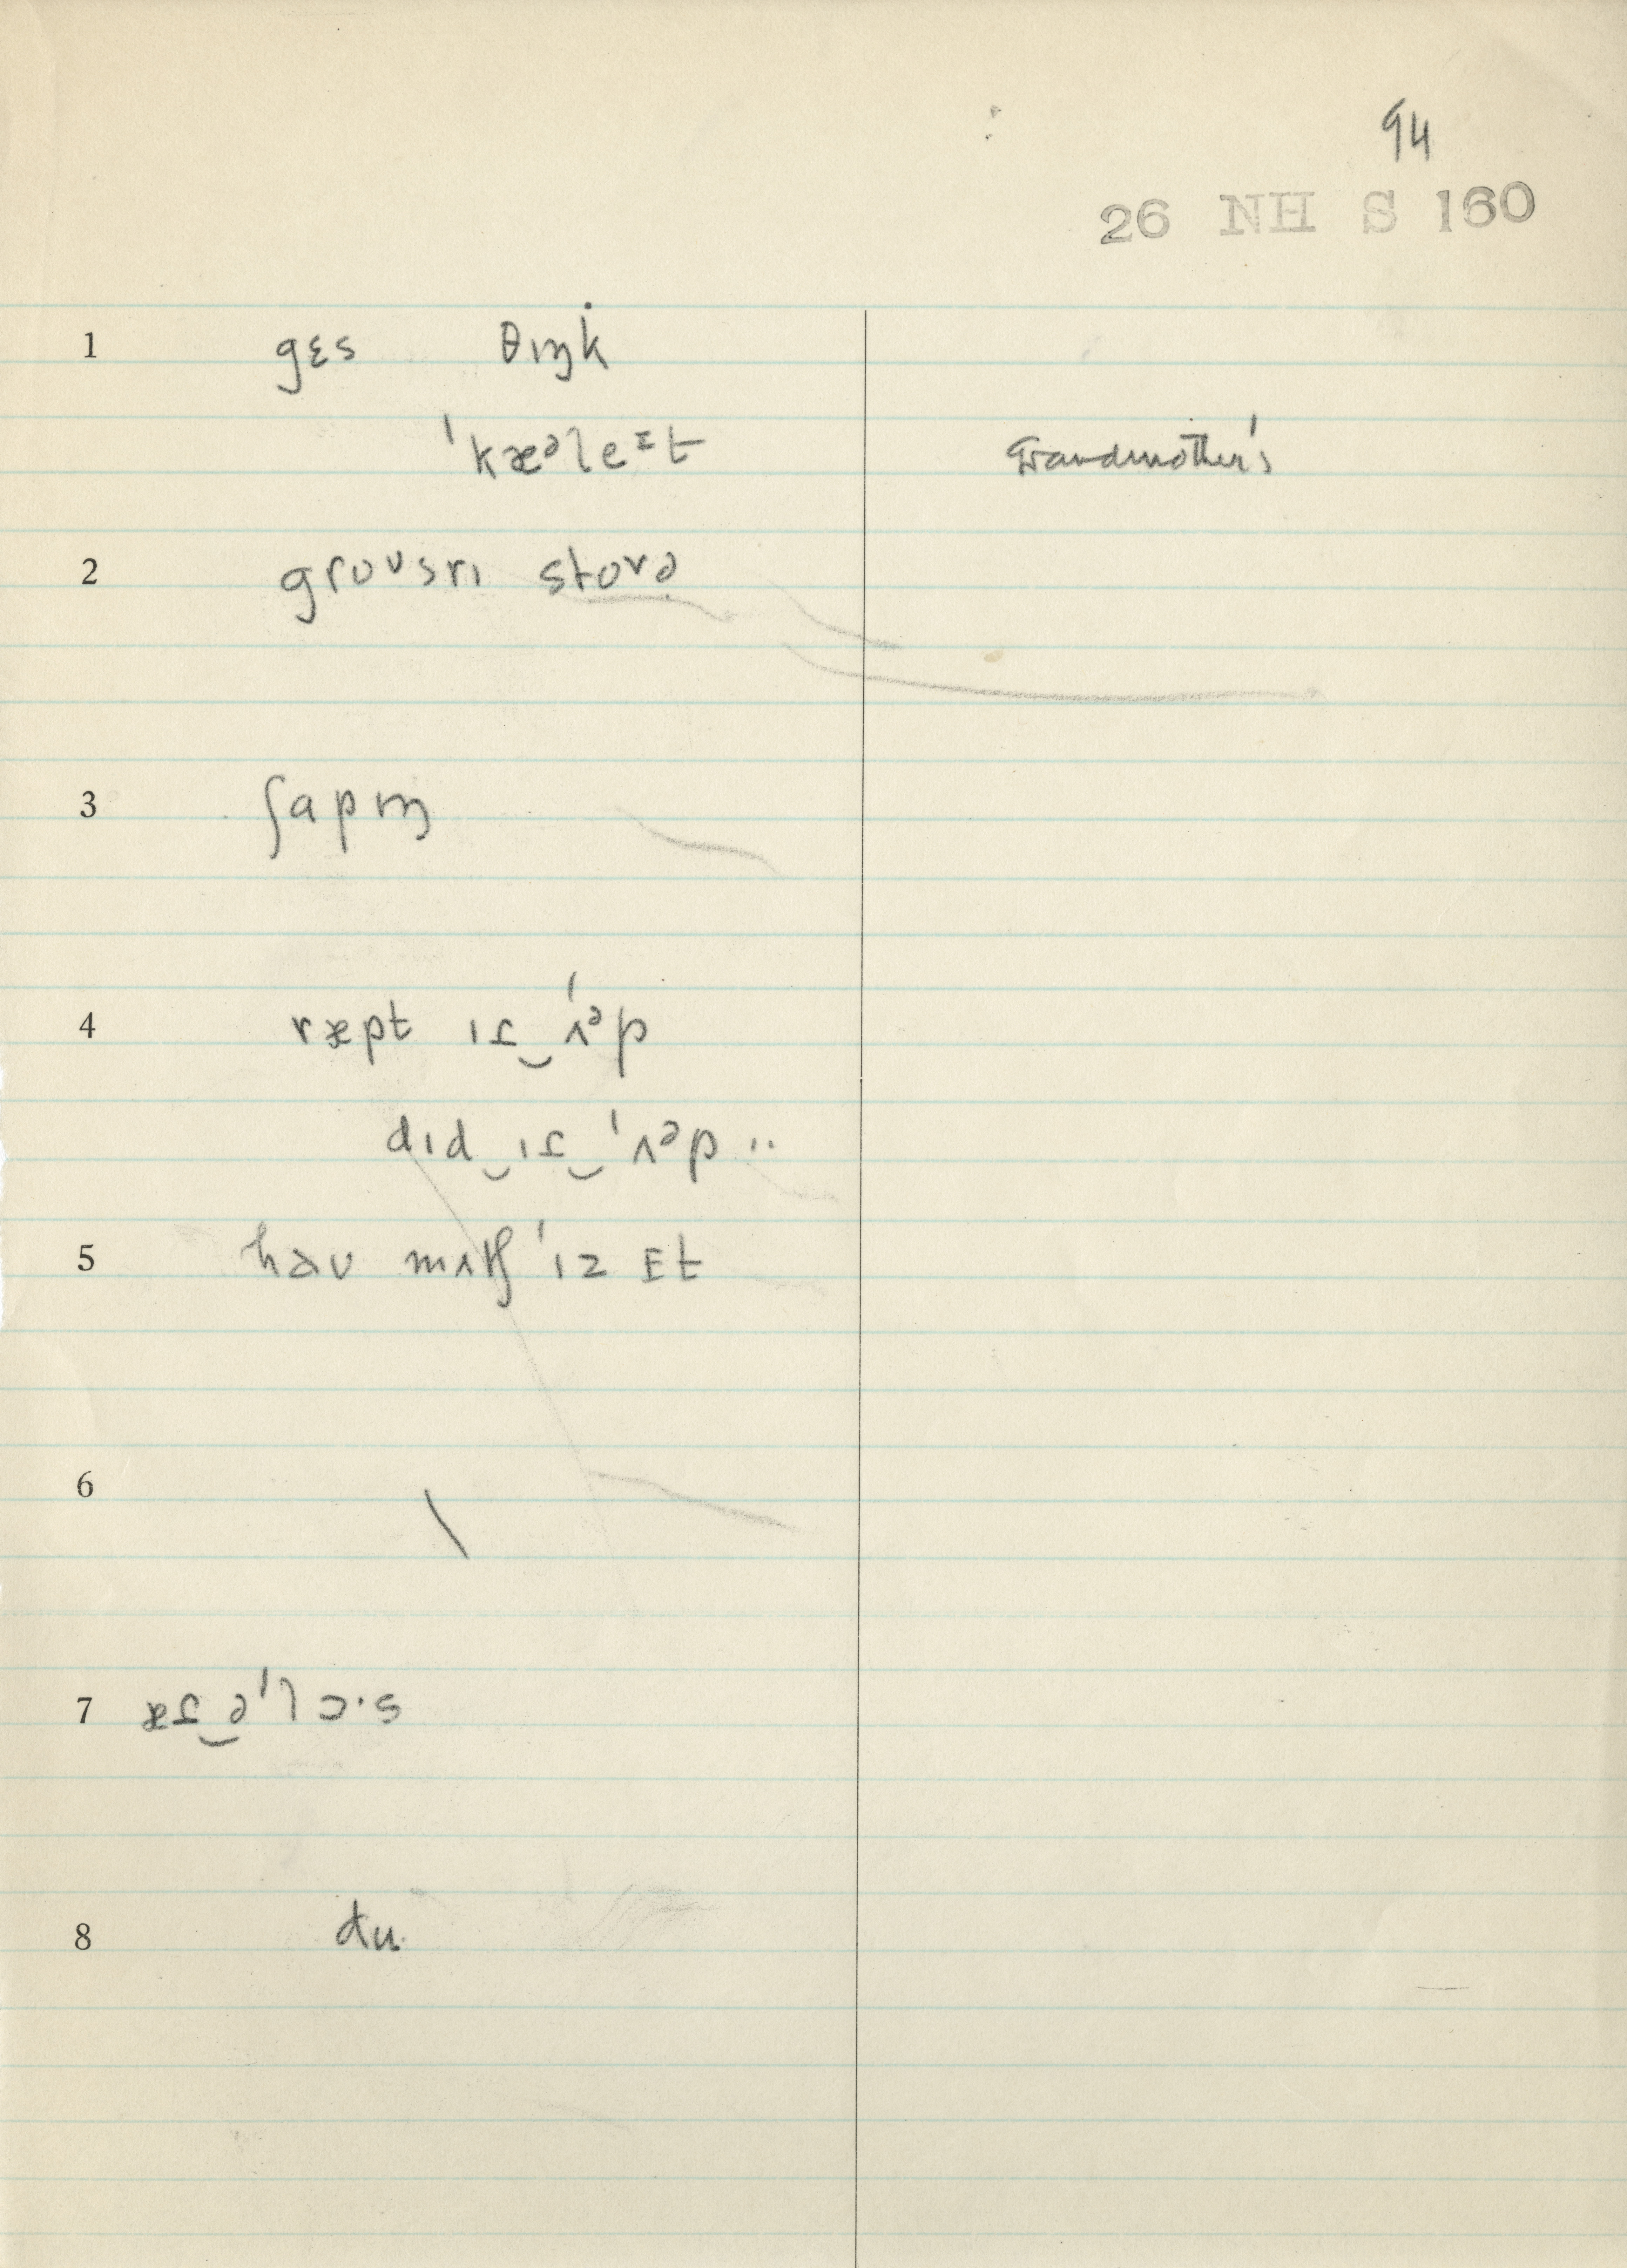 94
26 NH S 160
1 gɛs θɪŋk
ˈkæᵊleᶦt Grandmother's
2 groᴜsrɪ stoɾə
3 ʃapɪŋ
4 ræpt ɪɾ‿ˈʌᵊp
dɪd‿ɪɾ‿ˈʌᵊp ..
5 haᴜ mʌtʃ ˈɪz ɪt
6 \
7 æɾ‿əˈlɔ·s
8 du